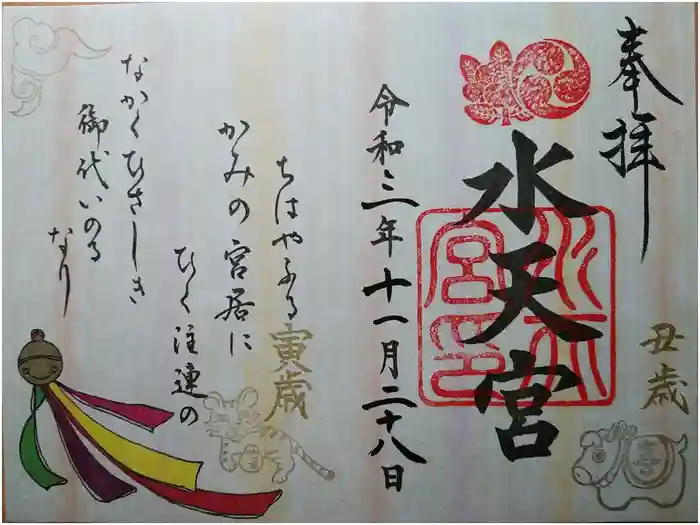 奉拝
丑歳
水天宮
令和三年十一月二十八日
寅歳
ちはやふる
かみの宮居に
ひく注連の
なかくひさしき
御代いのる
なり